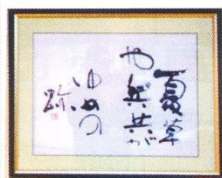 夏草
や兵共が
ゆめの
跡